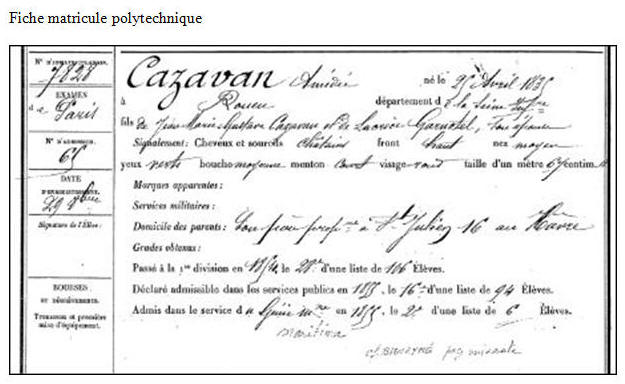 Fiche matricule polytechnique
N° D'IMMATRICULATION.
7828
EXAMEN
d e Paris
N° D'ADMISSION.
65
DATE
D'ENREGISTREMENT.
29 9bre
Signature de l'Élève:
BOURSES
ET DÉGRÈVEMENTS.
Trousseau et première
mise d'équipement.
Cazavan Amédée né le 25 Avril 1835
à Rouen département d e la Seine Infre
fils de Jean Marie Gustave Cazavan et de
Signalement: Cheveux et sourcils châtains front haut nez moyen
yeux verts bouche moyenne menton court visage rond taille d'un mètre 67 centim.
Marques apparentes:
Services militaires:
Domicile des parents: Son père à St Julien 16 au Havre
Grades obtenus:
Passé à la 1re division en 1854, le 28e d'une liste de 106 Élèves.
Déclaré admissible dans les services publics en 1855, le 16e d'une liste de 94 Élèves.
Admis dans le service d u Génie mme en 1855, le 2e d'une liste de 6 Élèves.
maritime